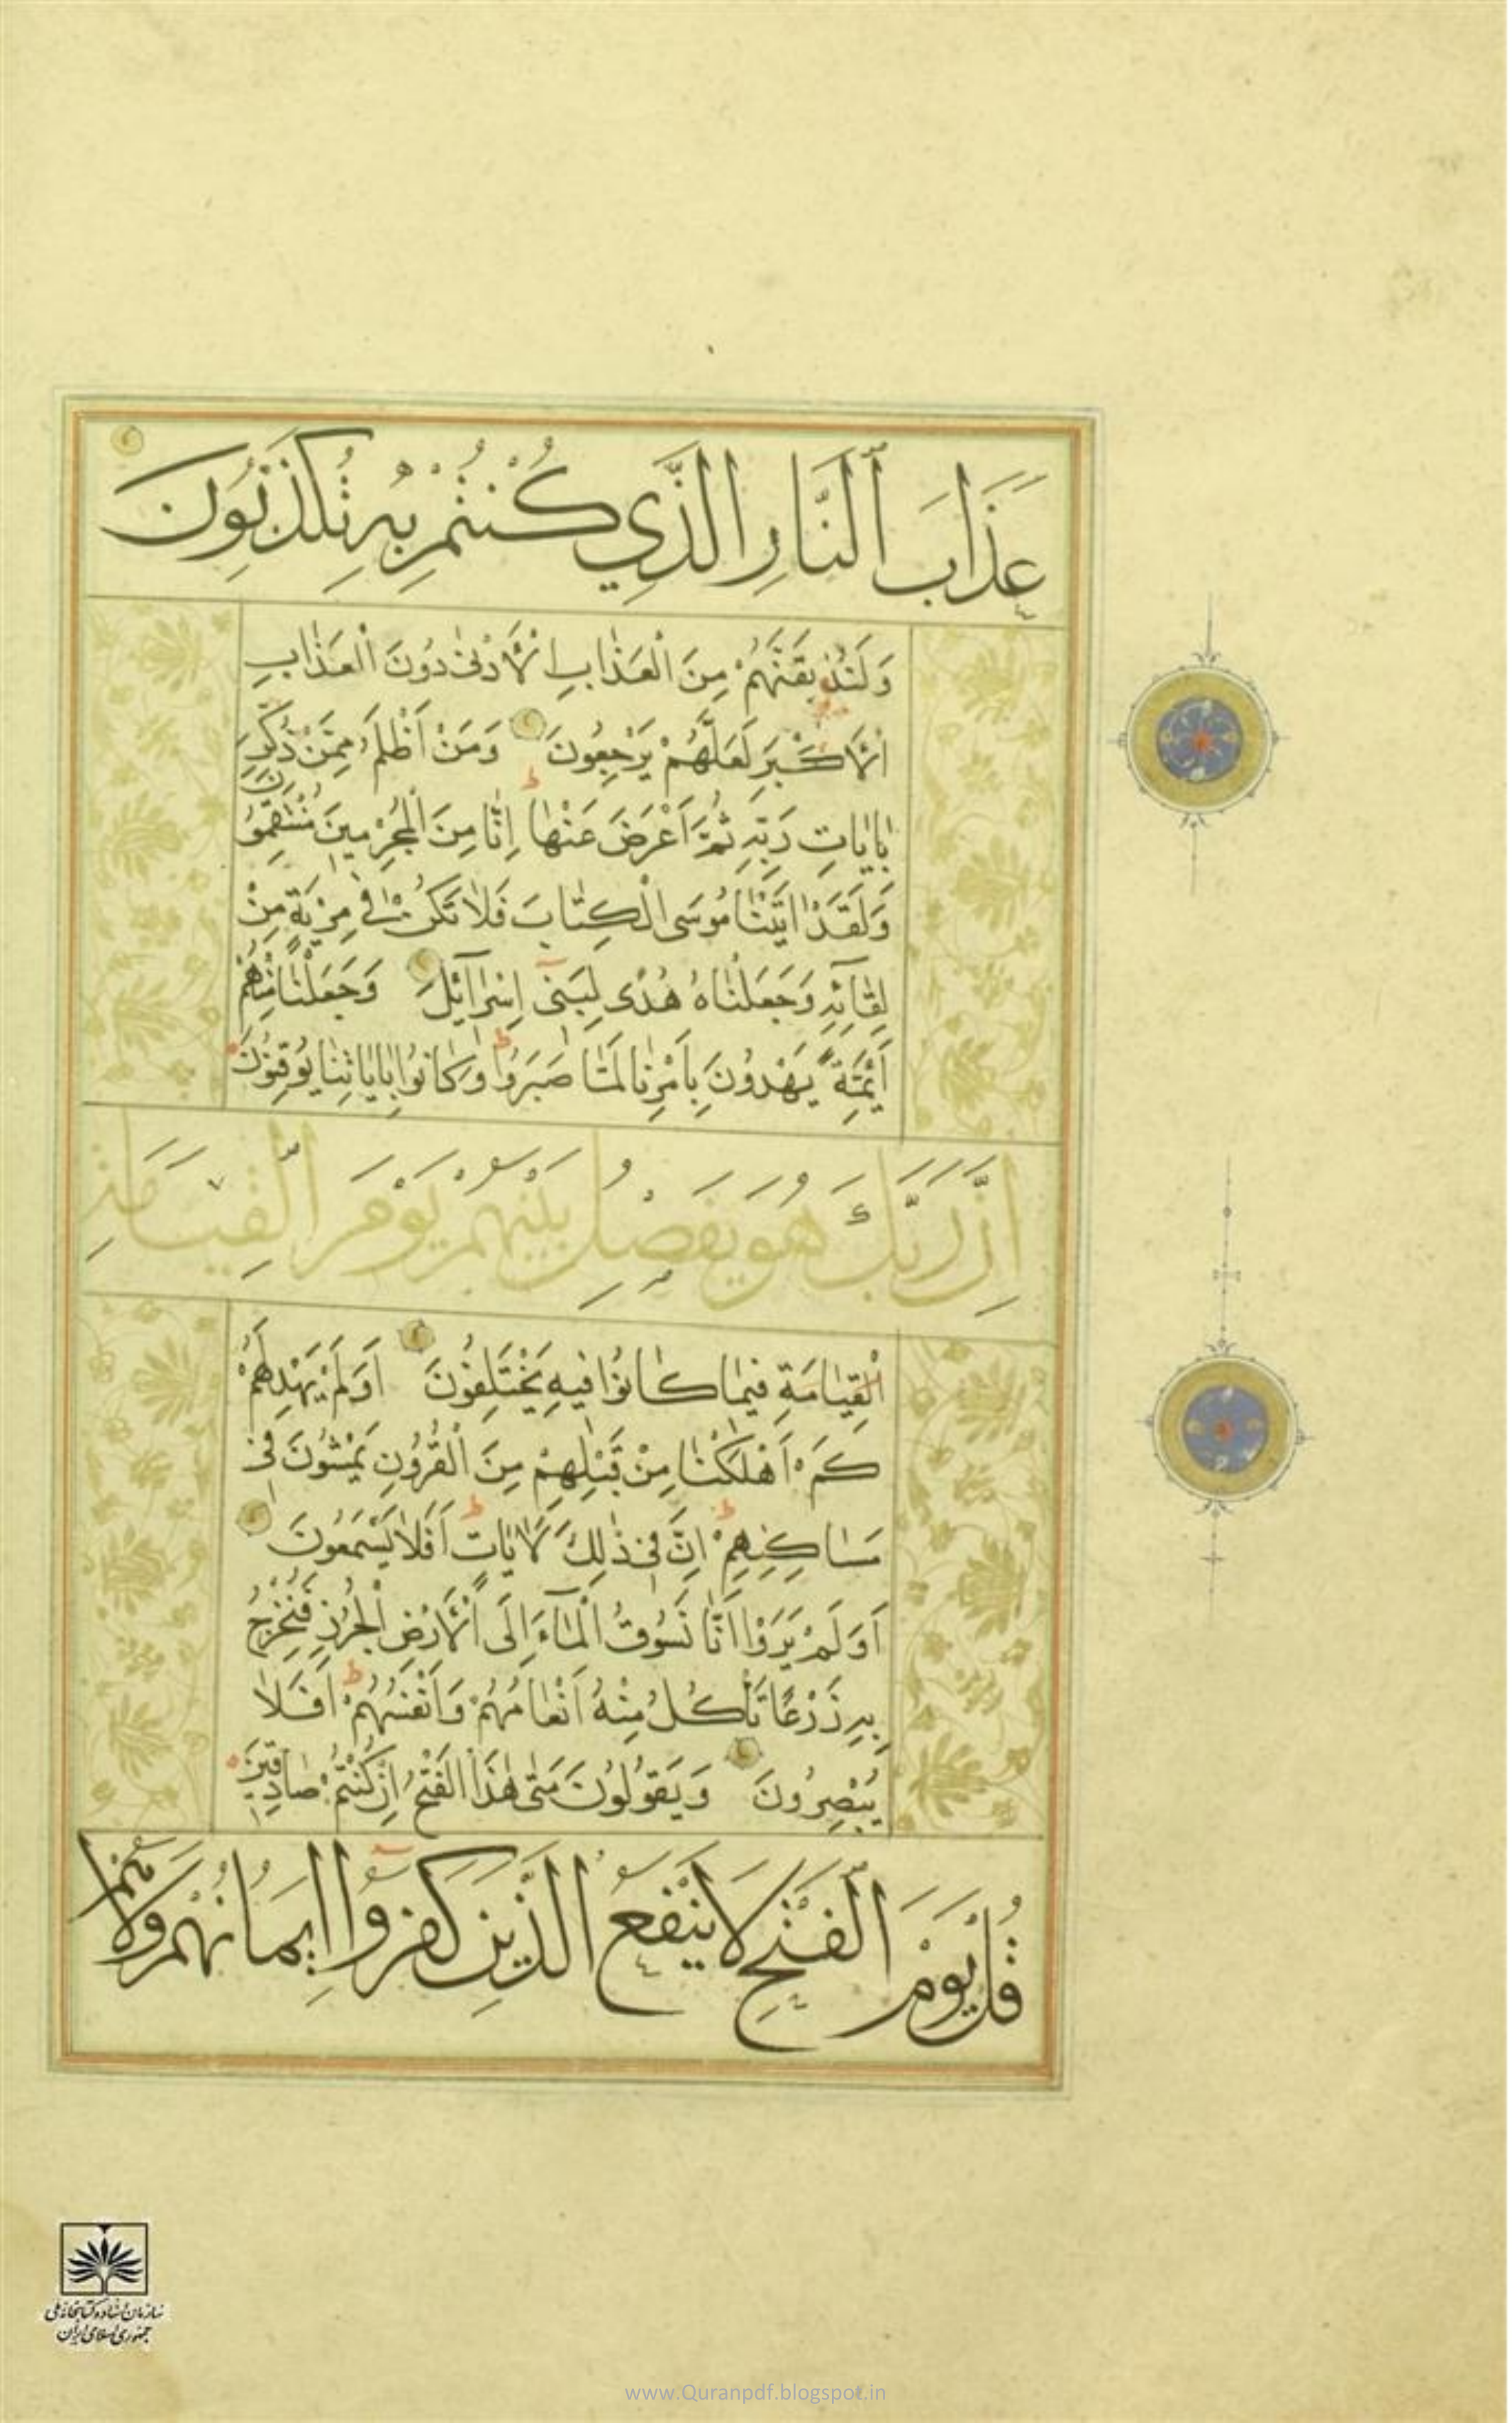 عَذَابَ ٱلنَّارِ الَّذِي كُنْتُمْ بِهِ تُكَذِّبُونَ
وَلَنُذِيقَنَّهُمْ مِنَ الْعَذَابِ الْأَدْنٰى دُونَ الْعَذَابِ
الْأَكْبَرِ لَعَلَّهُمْ يَرْجِعُونَ وَمَنْ أَظْلَمُ مِمَّنْ ذُكِّرَ
بِاٰيَاتِ رَبِّهِ ثُمَّ أَعْرَضَ عَنْهَا إِنَّا مِنَ الْمُجْرِمِينَ مُنْتَقِمُونَ
وَلَقَدْ اٰتَيْنَا مُوسَى الْكِتَابَ فَلَا تَكُنْ فِي مِرْيَةٍ مِنْ
لِقَآئِهِ وَجَعَلْنَاهُ هُدًى لِبَنِٓى إِسْرَآئِلَ وَجَعَلْنَا مِنْهُمْ
أَئِمَّةً يَهْدُونَ بِأَمْرِنَا لَمَّا صَبَرُوا وَكَانُوا بِاٰيَاتِنَا يُوقِنُونَ
إِنَّ رَبَّكَ هُوَ يَفْصِلُ بَيْنَهُمْ يَوْمَ الْقِيَامَةِ
الْقِيَامَةِ فِيمَا كَانُوا فِيهِ يَخْتَلِفُونَ أَوَلَمْ يَهْدِ لَهُمْ
كَمْ أَهْلَكْنَا مِنْ قَبْلِهِمْ مِنَ الْقُرُونِ يَمْشُونَ فِى
مَسَاكِنِهِمْ إِنَّ فِى ذٰلِكَ لَاٰيَاتٍ أَفَلَا يَسْمَعُونَ
أَوَلَمْ يَرَوْا أَنَّا نَسُوقُ الْمَآءَ إِلَى الْأَرْضِ الْجُرُزِ فَنُخْرِجُ
بِهِ زَرْعًا تَأْكُلُ مِنْهُ أَنْعَامُهُمْ وَأَنْفُسُهُمْ أَفَلَا
يُبْصِرُونَ وَيَقُولُونَ مَتٰى هٰذَا الْفَتْحُ إِنْ كُنْتُمْ صَادِقِينَ
قُلْ يَوْمَ الْفَتْحِ لَا يَنْفَعُ الَّذِينَ كَفَرُوٓا إِيمَانُهُمْ وَلَا هُمْ
سازمان اسناد و کتابخانه ملی
جمهوری اسلامی ایران
www.Quranpdf.blogspot.in